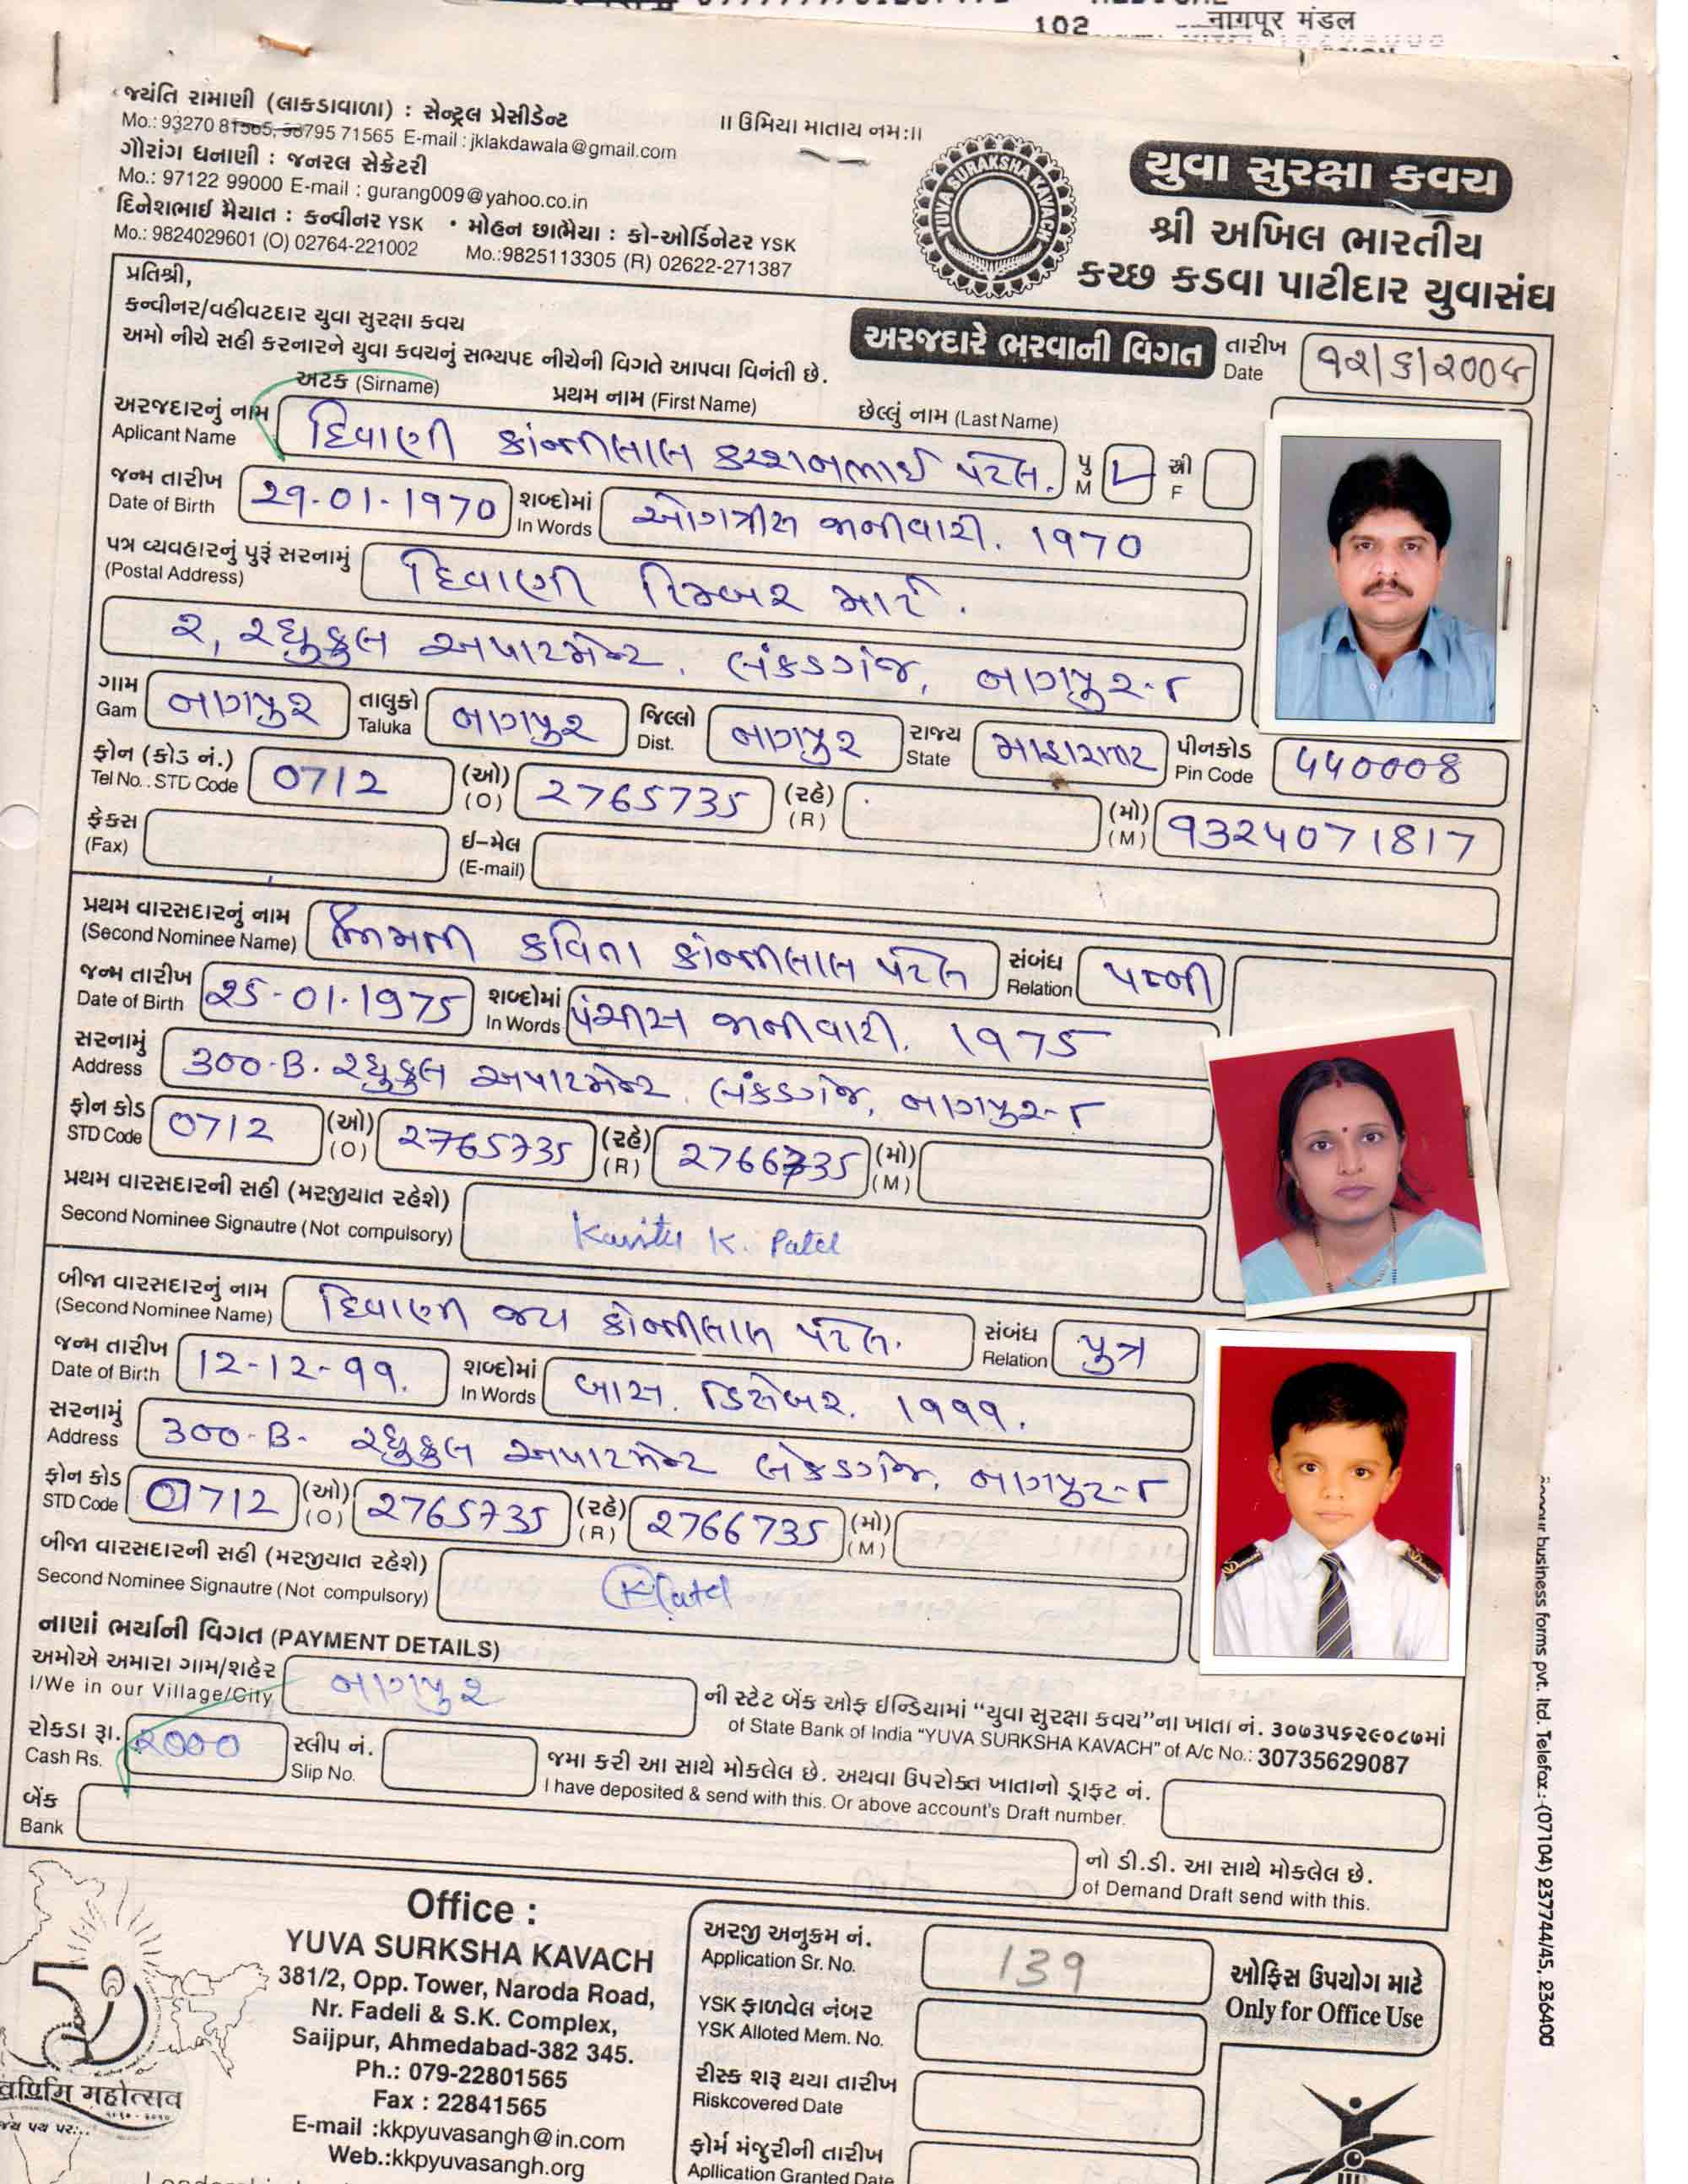 102 नागपूर मंडल
જયંતિ રામાણી (લાકડાવાળા) : સેન્ટ્રલ પ્રેસીડેન્ટ
Mo.: 93270 81565, 98795 71565 E-mail : jklakdawala@gmail.com
ગૌરાંગ ધનાણી : જનરલ સેક્રેટરી
Mo.: 97122 99000 E-mail : gurang009@yahoo.co.in
દિનેશભાઈ મૈયાત : કન્વીનર YSK • મોહન છાભૈયા : કો-ઓર્ડિનેટર YSK
Mo.: 9824029601 (O) 02764-221002 Mo.:9825113305 (R) 02622-271387
॥ ઉમિયા માતાય નમ:॥
YUVA SURAKSHA KAVACH
યુવા સુરક્ષા કવચ
શ્રી અખિલ ભારતીય
કચ્છ કડવા પાટીદાર યુવાસંઘ
પ્રતિશ્રી,
કન્વીનર/વહીવટદાર યુવા સુરક્ષા કવચ
અમો નીચે સહી કરનારને યુવા કવચનું સભ્યપદ નીચેની વિગતે આપવા વિનંતી છે.
અરજદારે ભરવાની વિગત
તારીખ Date ૧૨/૬/૨૦૦૯
અટક (Sirname) પ્રથમ નામ (First Name) છેલ્લું નામ (Last Name)
અરજદારનું નામ Aplicant Name દિવાણી કાંન્તીલાલ કરશનભાઈ પટેલ. પુ M સ્ત્રી F
જન્મ તારીખ Date of Birth 29-01-1970 શબ્દોમાં In Words ઓગત્રીસ જાનીવારી. 1970
પત્ર વ્યવહારનું પુરૂં સરનામું (Postal Address) દિવાણી ટિમ્બર માર્ટ.
૨, રઘુકુલ અપાટમેન્ટ, લંકડગંજ, નાગપુર-૮
ગામ Gam નાગપુર તાલુકો Taluka નાગપુર જિલ્લો Dist. નાગપુર રાજ્ય State પીનકોડ Pin Code ૪૪0008
ફોન (કોડ નં.) Tel No. . STD Code 0712 (ઓ) (O) 2765735 (રહે) (R) (મો) (M) 9324071817
ફેકસ (Fax) ઈ-મેલ (E-mail)
પ્રથમ વારસદારનું નામ (Second Nominee Name) શ્રિમતી કવિતા કાંન્તીલાલ પટેલ સંબંધ Relation પત્ની
જન્મ તારીખ Date of Birth 25-01-1975 શબ્દોમાં In Words પંચીસ જાનીવારી. 1975
સરનામું Address 300-B. રઘુકુલ અપાટમેન્ટ, લંકડગંજ, નાગપુર-૮
ફોન કોડ STD Code 0712 (ઓ) (O) 2765735 (રહે) (R) 2766735 (મો) (M)
પ્રથમ વારસદારની સહી (મરજીયાત રહેશે)
Second Nominee Signautre (Not compulsory) Kavita K. Patel
બીજા વારસદારનું નામ (Second Nominee Name) દિવાણી જય કાંન્તીલાલ પટેલ. સંબંધ Relation પુત્ર
જન્મ તારીખ Date of Birth 12-12-99. શબ્દોમાં In Words બાસ. ડિસેંબર. 1999.
સરનામું Address 300-B- રઘુકુલ અપાટમેન્ટ લંકડગંજ, નાગપુર-૮
ફોન કોડ STD Code 0712 (ઓ) (O) 2765735 (રહે) (R) 2766735 (મો) (M)
બીજા વારસદારની સહી (મરજીયાત રહેશે)
Second Nominee Signautre (Not compulsory) K Patel
નાણાં ભર્યાની વિગત (PAYMENT DETAILS)
અમોએ અમારા ગામ/શહેર I/We in our Village/City નાગપુર ની સ્ટેટ બેંક ઓફ ઈન્ડિયામાં “યુવા સુરક્ષા કવચ”ના ખાતા નં. ૩૦૭૩૫૬૨૯૦૮૭માં
of State Bank of India “YUVA SURKSHA KAVACH” of A/c No.: 30735629087
રોકડા રૂા. Cash Rs. ૨૦૦૦ સ્લીપ નં. Slip No. જમા કરી આ સાથે મોકલેલ છે. અથવા ઉપરોક્ત ખાતાનો ડ્રાફ્ટ નં.
I have deposited & send with this. Or above account's Draft number.
બેંક Bank નો ડી.ડી. આ સાથે મોકલેલ છે.
of Demand Draft send with this.
business forms pvt. ltd. Telefax : (07104) 237744/45, 236400
50
महोत्सव
Office :
YUVA SURKSHA KAVACH
381/2, Opp. Tower, Naroda Road,
Nr. Fadeli & S.K. Complex,
Saijpur, Ahmedabad-382 345.
Ph.: 079-22801565
Fax : 22841565
E-mail :kkpyuvasangh@in.com
Web.:kkpyuvasangh.org
અરજી અનુક્રમ નં. Application Sr. No. 139
YSK ફાળવેલ નંબર YSK Alloted Mem. No.
રીસ્ક શરૂ થયા તારીખ Riskcovered Date
ફોર્મ મંજુરીની તારીખ Apllication Granted Date
ઓફિસ ઉપયોગ માટે
Only for Office Use